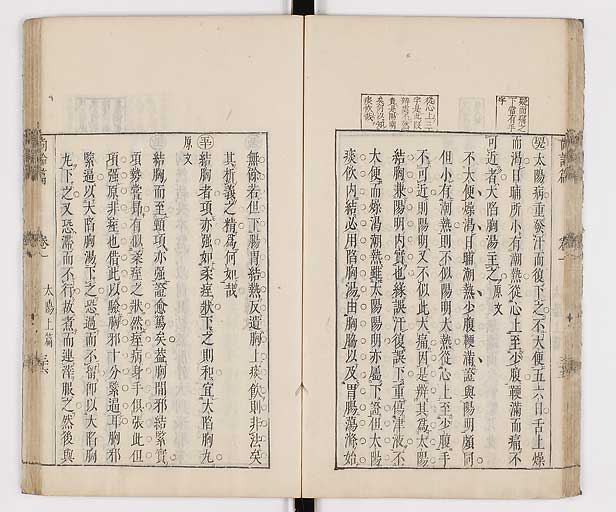 太陽病重發汗而復下之不大便五六日舌上燥
而渴日晡所小有潮熱從心上至少腹鞕滿而痛不
可近者大陷胸湯主之原文
不大便燥渴日晡潮熱少腹鞕滿證與陽明頗同
但小有潮熱則不似陽明大熱從心上至少腹手
不可近則陽明又不似此大痛因是辨其為太陽
結胸兼陽明內實也緣誤汗復誤下重傷津液不
大便而燥渴潮熱雖太陽陽明亦屬下證但太陽
痰飲內結必用陷胸湯由胸脇以及胃腸蕩滌始
無餘若但下腸胃結熱反遺胸上痰飲則非法矣
其析義之精為何如哉
結胸者項亦强如柔痓狀下之則和宜大陷胸丸
原文
結胸而至頸項亦强證愈篤矣蓋胸間邪結緊實
項勢常昂有似柔痓之狀然痓病身手俱張此但
項强原非痓也借此以驗胸邪十分緊逼耳胸邪
緊逼以大陷胸湯下之恐過而不留即以大陷胸
丸下之又恐滯而不行故煮而連滓服之然後與
尚論篇 卷一 太陽上篇